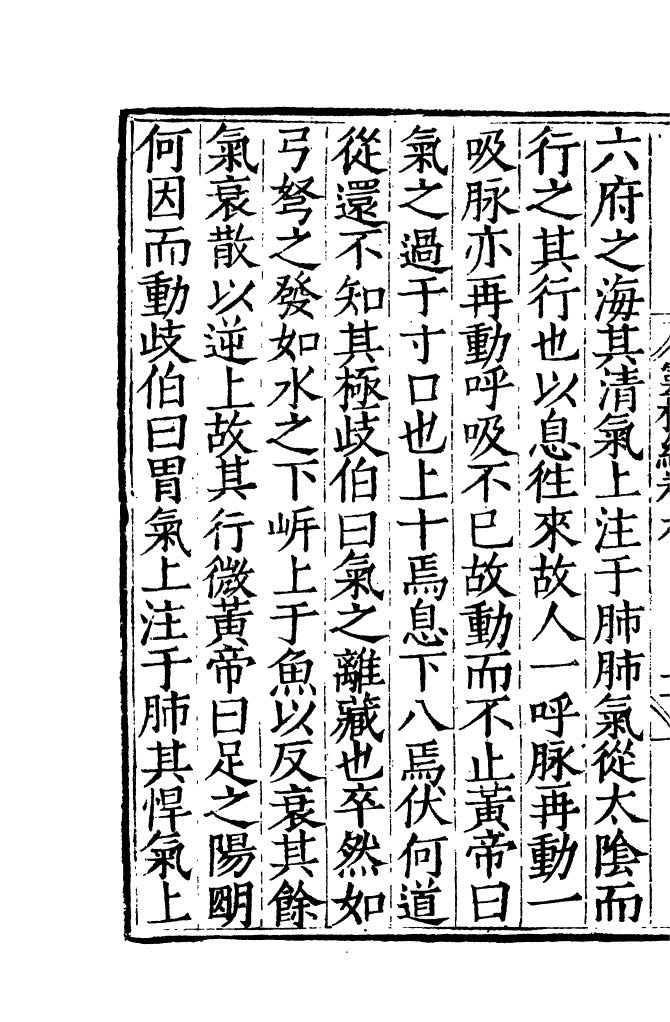 六府之海其清氣上注于肺肺氣從太陰而
行之其行也以息徃來故人一呼脉再動一
吸脉亦再動呼吸不已故動而不止黃帝曰
氣之過于寸口也上十焉息下八焉伏何道
從還不知其極歧伯曰氣之離藏也卒然如
弓弩之發如水之下㟁上于魚以反衰其餘
氣衰散以逆上故其行微黃帝曰足之陽明
何因而動歧伯曰胃氣上注于肺其悍氣上